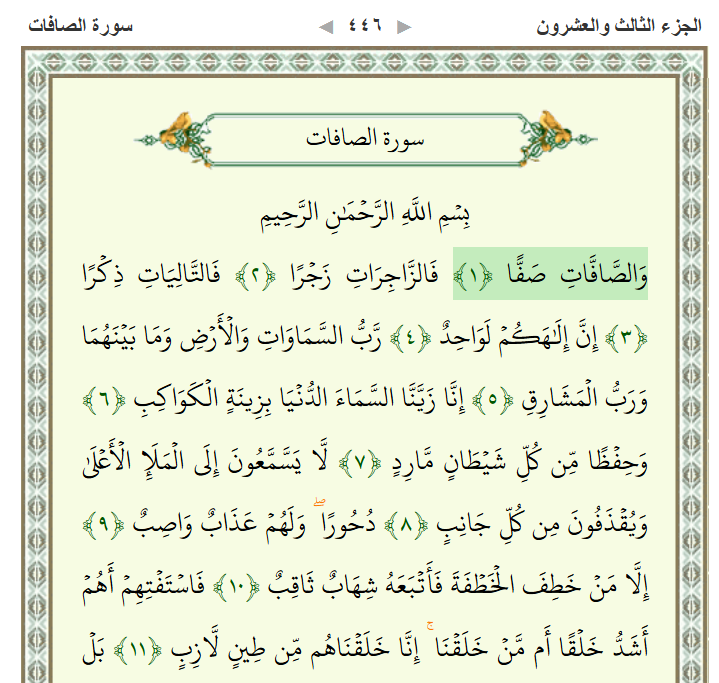 الجزء الثالث والعشرون ◄ ٤٤٦ ► سورة الصافات
سورة الصافات
بِسْمِ اللَّهِ الرَّحْمَٰنِ الرَّحِيمِ
وَالصَّافَّاتِ صَفًّا ﴿١﴾ فَالزَّاجِرَاتِ زَجْرًا ﴿٢﴾ فَالتَّالِيَاتِ ذِكْرًا
﴿٣﴾ إِنَّ إِلَٰهَكُمْ لَوَاحِدٌ ﴿٤﴾ رَّبُّ السَّمَاوَاتِ وَالْأَرْضِ وَمَا بَيْنَهُمَا
وَرَبُّ الْمَشَارِقِ ﴿٥﴾ إِنَّا زَيَّنَّا السَّمَاءَ الدُّنْيَا بِزِينَةٍ الْكَوَاكِبِ ﴿٦﴾
وَحِفْظًا مِّن كُلِّ شَيْطَانٍ مَّارِدٍ ﴿٧﴾ لَّا يَسَّمَّعُونَ إِلَى الْمَلَإِ الْأَعْلَىٰ
وَيُقْذَفُونَ مِن كُلِّ جَانِبٍ ﴿٨﴾ دُحُورًا ۖ وَلَهُمْ عَذَابٌ وَاصِبٌ ﴿٩﴾
إِلَّا مَنْ خَطِفَ الْخَطْفَةَ فَأَتْبَعَهُ شِهَابٌ ثَاقِبٌ ﴿١٠﴾ فَاسْتَفْتِهِمْ أَهُمْ
أَشَدُّ خَلْقًا أَم مَّنْ خَلَقْنَا ۚ إِنَّا خَلَقْنَاهُم مِّن طِينٍ لَّازِبٍ ﴿١١﴾ بَلْ